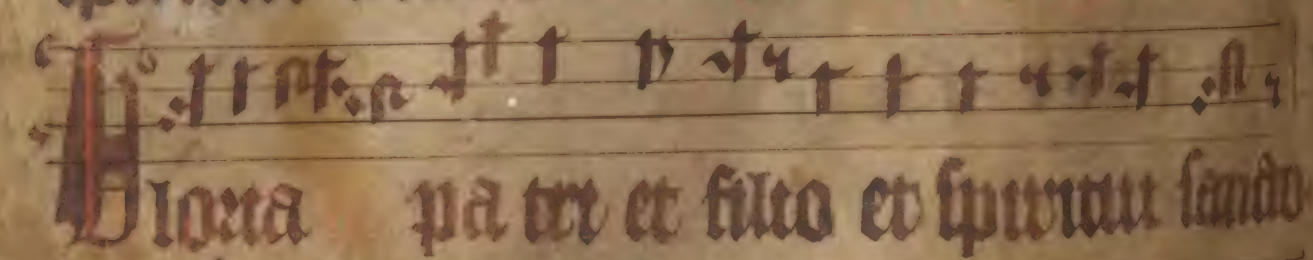 Gloria pa tri et filio et spiritui sancto